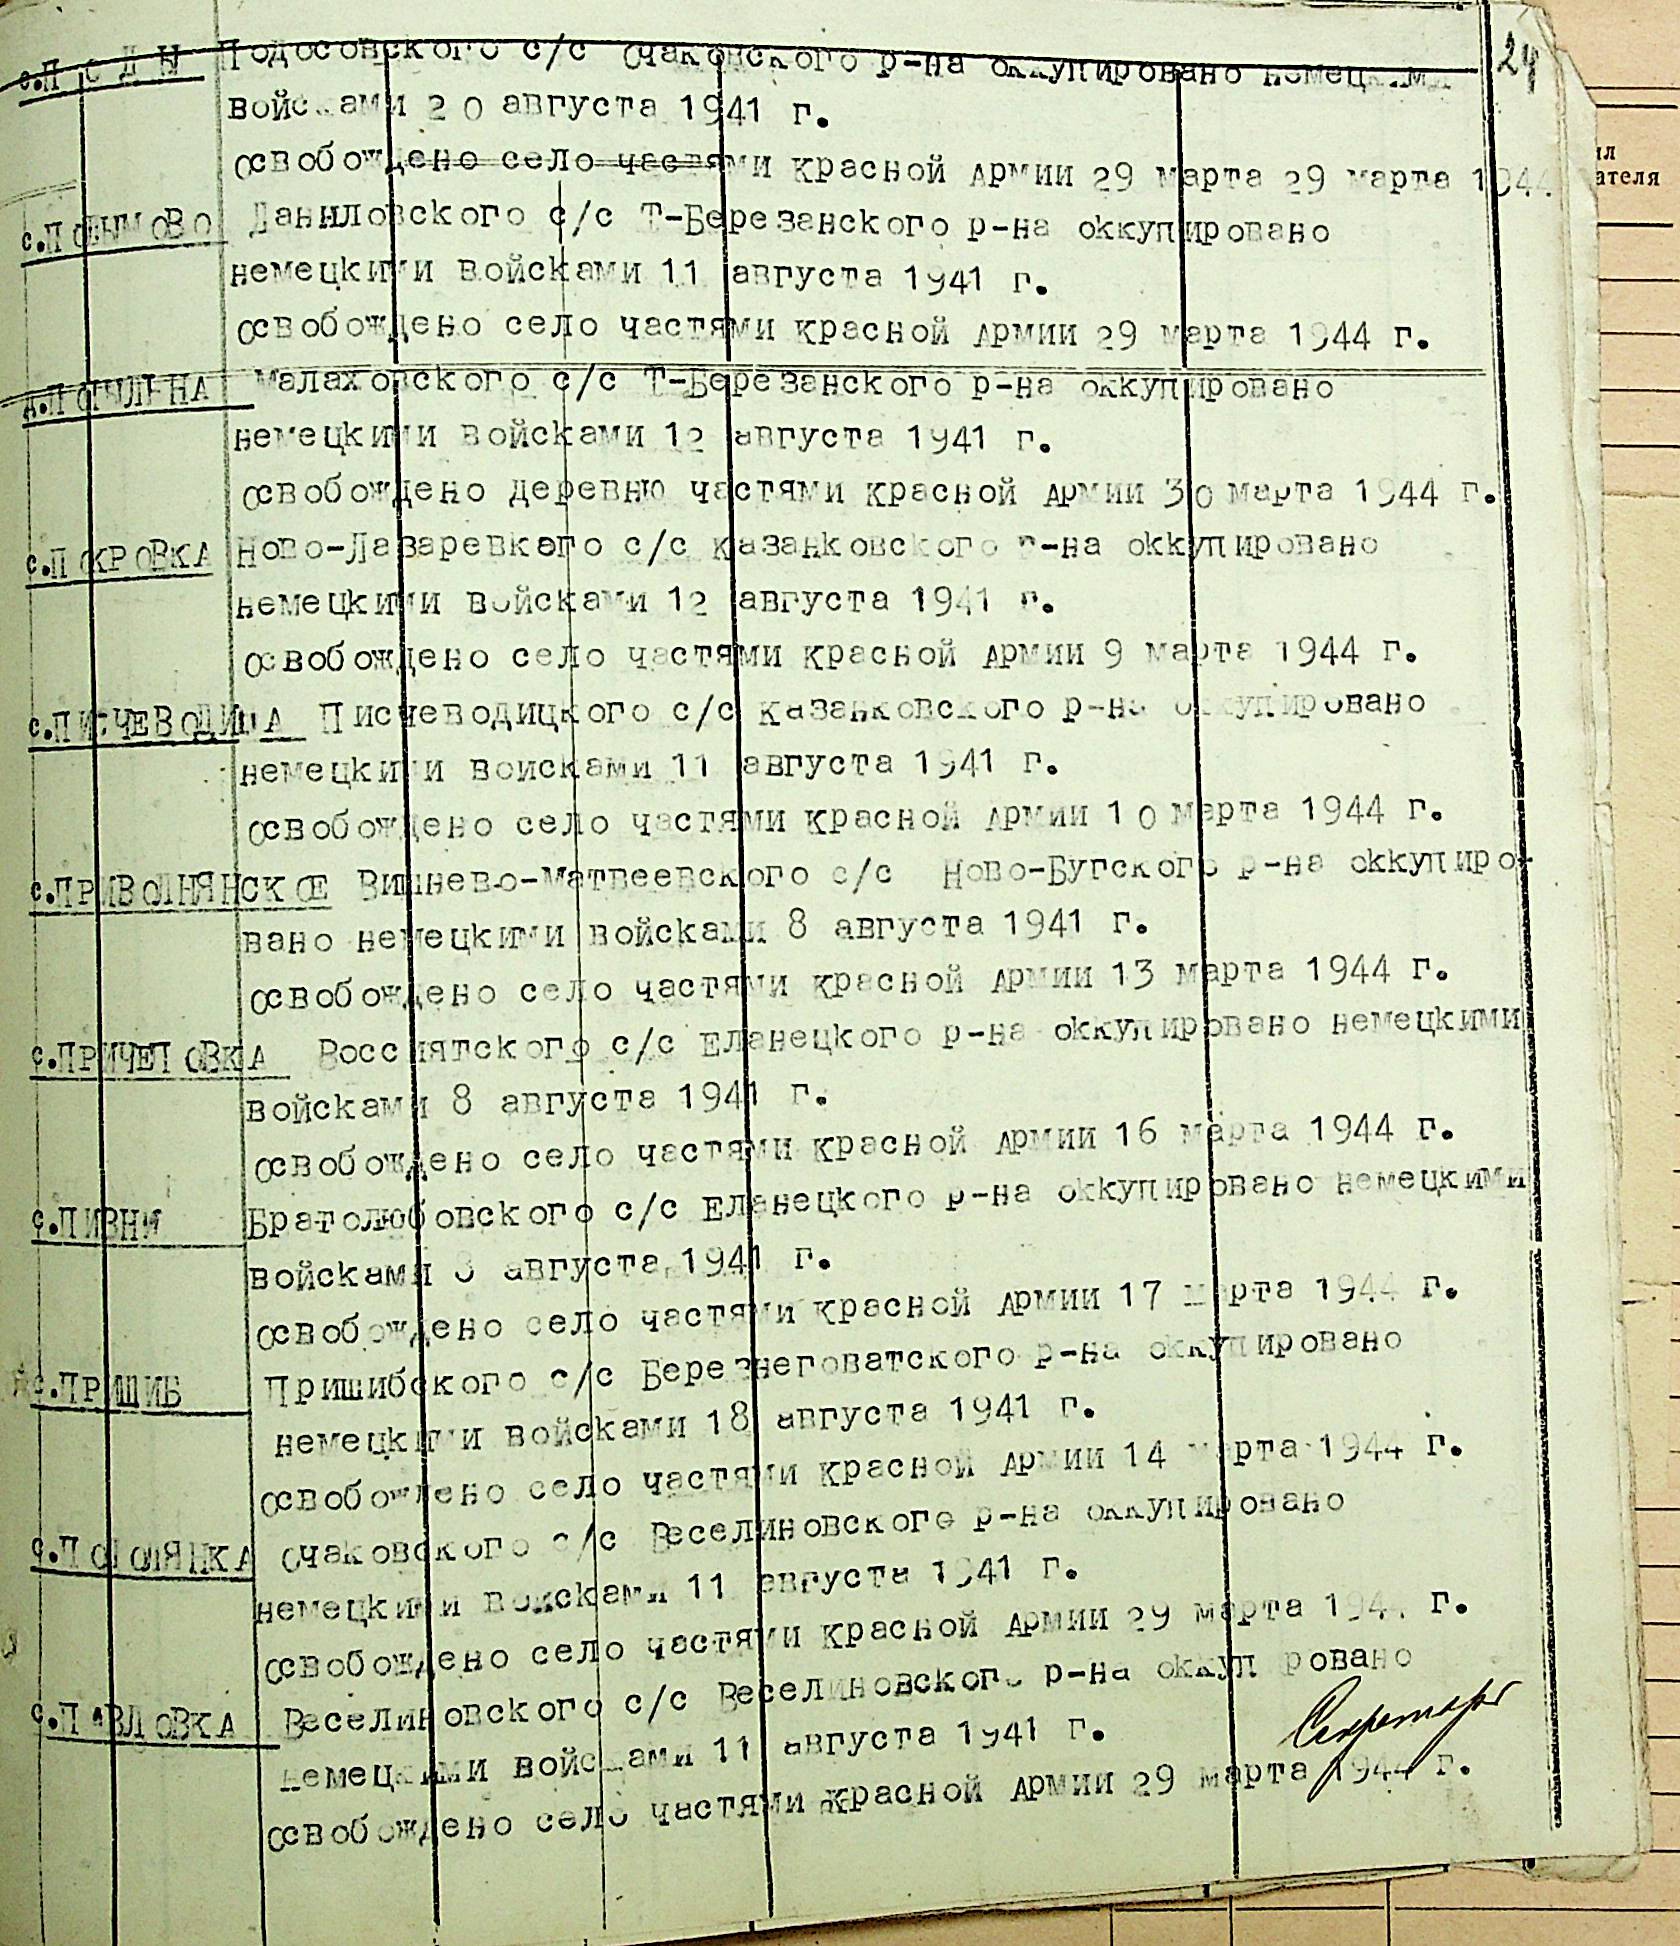 24
Подосонского с/с Очаковского р-на оккупировано немецкими
войсками 20 августа 1941 г.
освобождено село частями красной Армии 29 марта 29 марта 1944
с.ПОДЫМОВО Даниловского с/с Т-Березанского р-на оккупировано
немецкими войсками 11 августа 1941 г.
освобождено село частями красной Армии 29 марта 1944 г.
Малаховского с/с Т-Березанского р-на оккупировано
немецкими войсками 12 августа 1941 г.
освобождено деревню частями красной Армии 30 марта 1944 г.
с.ПОКРОВКА Ново-Лазаревкого с/с казанковского р-на оккупировано
немецкими войсками 12 августа 1941 г.
освобождено село частями красной Армии 9 марта 1944 г.
с.ПИСЧЕВОДИЦА Писчеводицкого с/с казанковского р-на оккупировано
немецкими войсками 11 августа 1941 г.
освобождено село частями красной Армии 10 марта 1944 г.
с.ПРИВОЛНЯНСКОЕ Вишнево-Матвеевского с/с Ново-Бугского р-на оккупиро-
вано немецкими войсками 8 августа 1941 г.
освобождено село частями красной Армии 13 марта 1944 г.
с.ПРИЧЕПОВКА Воссиятского с/с Еланецкого р-на оккупировано немецкими
войсками 8 августа 1941 г.
освобождено село частями красной Армии 16 марта 1944 г.
с.ПИВНИ Братолюбовского с/с Еланецкого р-на оккупировано немецкими
войсками 8 августа 1941 г.
освобождено село частями красной Армии 17 марта 1944 г.
с.ПРИШИБ Пришибского с/с Березнеговатского р-на оккупировано
немецкими войсками 18 августа 1941 г.
освобождено село частями красной Армии 14 марта 1944 г.
с.ПОДОЛЯНКА Очаковского с/с Веселиновского р-на оккупировано
немецкими войсками 11 августа 1941 г.
освобождено село частями красной Армии 29 марта 1944 г.
с.ПАВЛОВКА Веселиновского с/с Веселиновского р-на оккупировано
немецкими войсками 11 августа 1941 г.
освобождено село частями красной Армии 29 марта 1944 г.
Секретарь